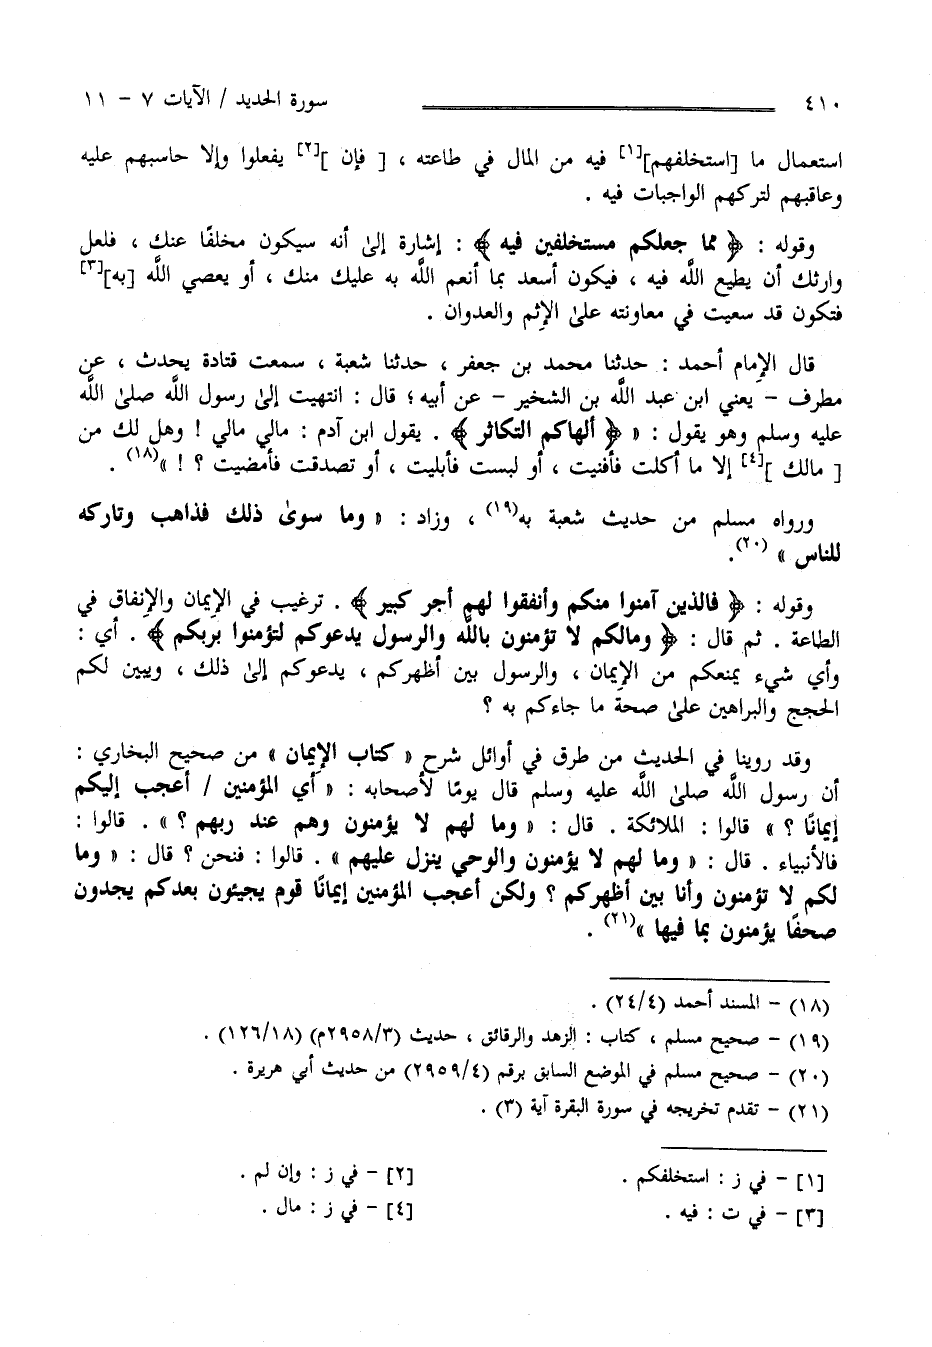 ٤١٠ سورة الحديد / الآيات ٧ - ١١
استعمال ما [استخلفهم][١] فيه من المال في طاعته ، [ فإن ][٢] يفعلوا وإلا حاسبهم عليه
وعاقبهم لتركهم الواجبات فيه .
وقوله : ﴿ مما جعلكم مستخلفين فيه ﴾ : إشارة إلىٰ أنه سيكون مخلفًا عنك ، فلعل
وارثك أن يطيع اللَّه فيه ، فيكون أسعد بما أنعم اللَّه به عليك منك ، أو يعصي اللَّه [به][٣]
فتكون قد سعيت في معاونته علىٰ الإثم والعدوان .
قال الإمام أحمد : حدثنا محمد بن جعفر ، حدثنا شعبة ، سمعت قتادة يحدث ، عن
مطرف - يعني ابن عبد اللَّه بن الشخير - عن أبيه؛ قال : انتهيت إلىٰ رسول اللَّه صلىٰ اللَّه
عليه وسلم وهو يقول : « ﴿ ألهاكم التكاثر ﴾ . يقول ابن آدم : مالي مالي ! وهل لك من
[ مالك ][٤] إلا ما أكلت فأفنيت ، أو لبست فأبليت ، أو تصدقت فأمضيت ؟ ! »(١٨) .
ورواه مسلم من حديث شعبة به(١٩) ، وزاد : « وما سوىٰ ذلك فذاهب وتاركه
للناس » (٢٠).
وقوله : ﴿ فالذين آمنوا منكم وأنفقوا لهم أجر كبير ﴾ . ترغيب في الإيمان والإنفاق في
الطاعة . ثم قال : ﴿ ومالكم لا تؤمنون باللَّه والرسول يدعوكم لتؤمنوا بربكم ﴾ . أي :
وأي شيء يمنعكم من الإيمان ، والرسول بين أظهركم ، يدعوكم إلىٰ ذلك ، ويبين لكم
الحجج والبراهين علىٰ صحة ما جاءكم به ؟
وقد روينا في الحديث من طرق في أوائل شرح « كتاب الإيمان » من صحيح البخاري :
أن رسول اللَّه صلىٰ اللَّه عليه وسلم قال يومًا لأصحابه : « أي المؤمنين / أعجب إليكم
إيمانًا ؟ » قالوا : الملائكة . قال : « وما لهم لا يؤمنون وهم عند ربهم ؟ » . قالوا :
فالأنبياء . قال : « وما لهم لا يؤمنون والوحي ينزل عليهم » . قالوا : فنحن ؟ قال : « وما
لكم لا تؤمنون وأنا بين أظهركم ؟ ولكن أعجب المؤمنين إيمانًا قوم يجيئون بعدكم يجدون
صحفًا يؤمنون بما فيها »(٢١) .
(١٨) - المسند أحمد (٢٤/٤) .
(١٩) - صحيح مسلم ، كتاب : الزهد والرقائق ، حديث (٢٩٥٨/٣م) (١٢٦/١٨) .
(٢٠) - صحيح مسلم في الموضع السابق برقم (٢٩٥٩/٤) من حديث أبي هريرة .
(٢١) - تقدم تخريجه في سورة البقرة آية (٣) .
[١] - في ز : استخلفكم . [٢] - في ز : وإن لم .
[٣] - في ت : فيه . [٤] - في ز : مال .